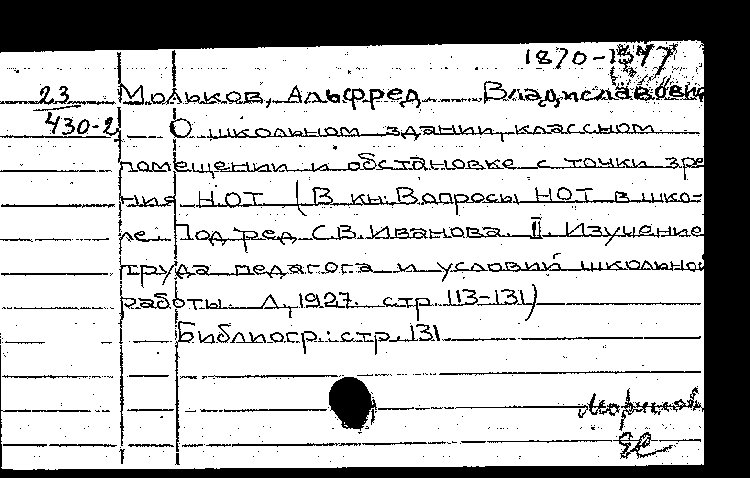 1870-1947
23 Мольков, Альфред Владиславови
430-2 О школьном здании, классном
помещении и обстановке с точки зре
ния НОТ (В кн: Вопросы НОТ в шко-
ле. Под ред С.В. Иванова. II. Изучение
труда педагога и условий школьной
работы. Л., 1927. стр. 113-131)
Библиогр.: стр. 131